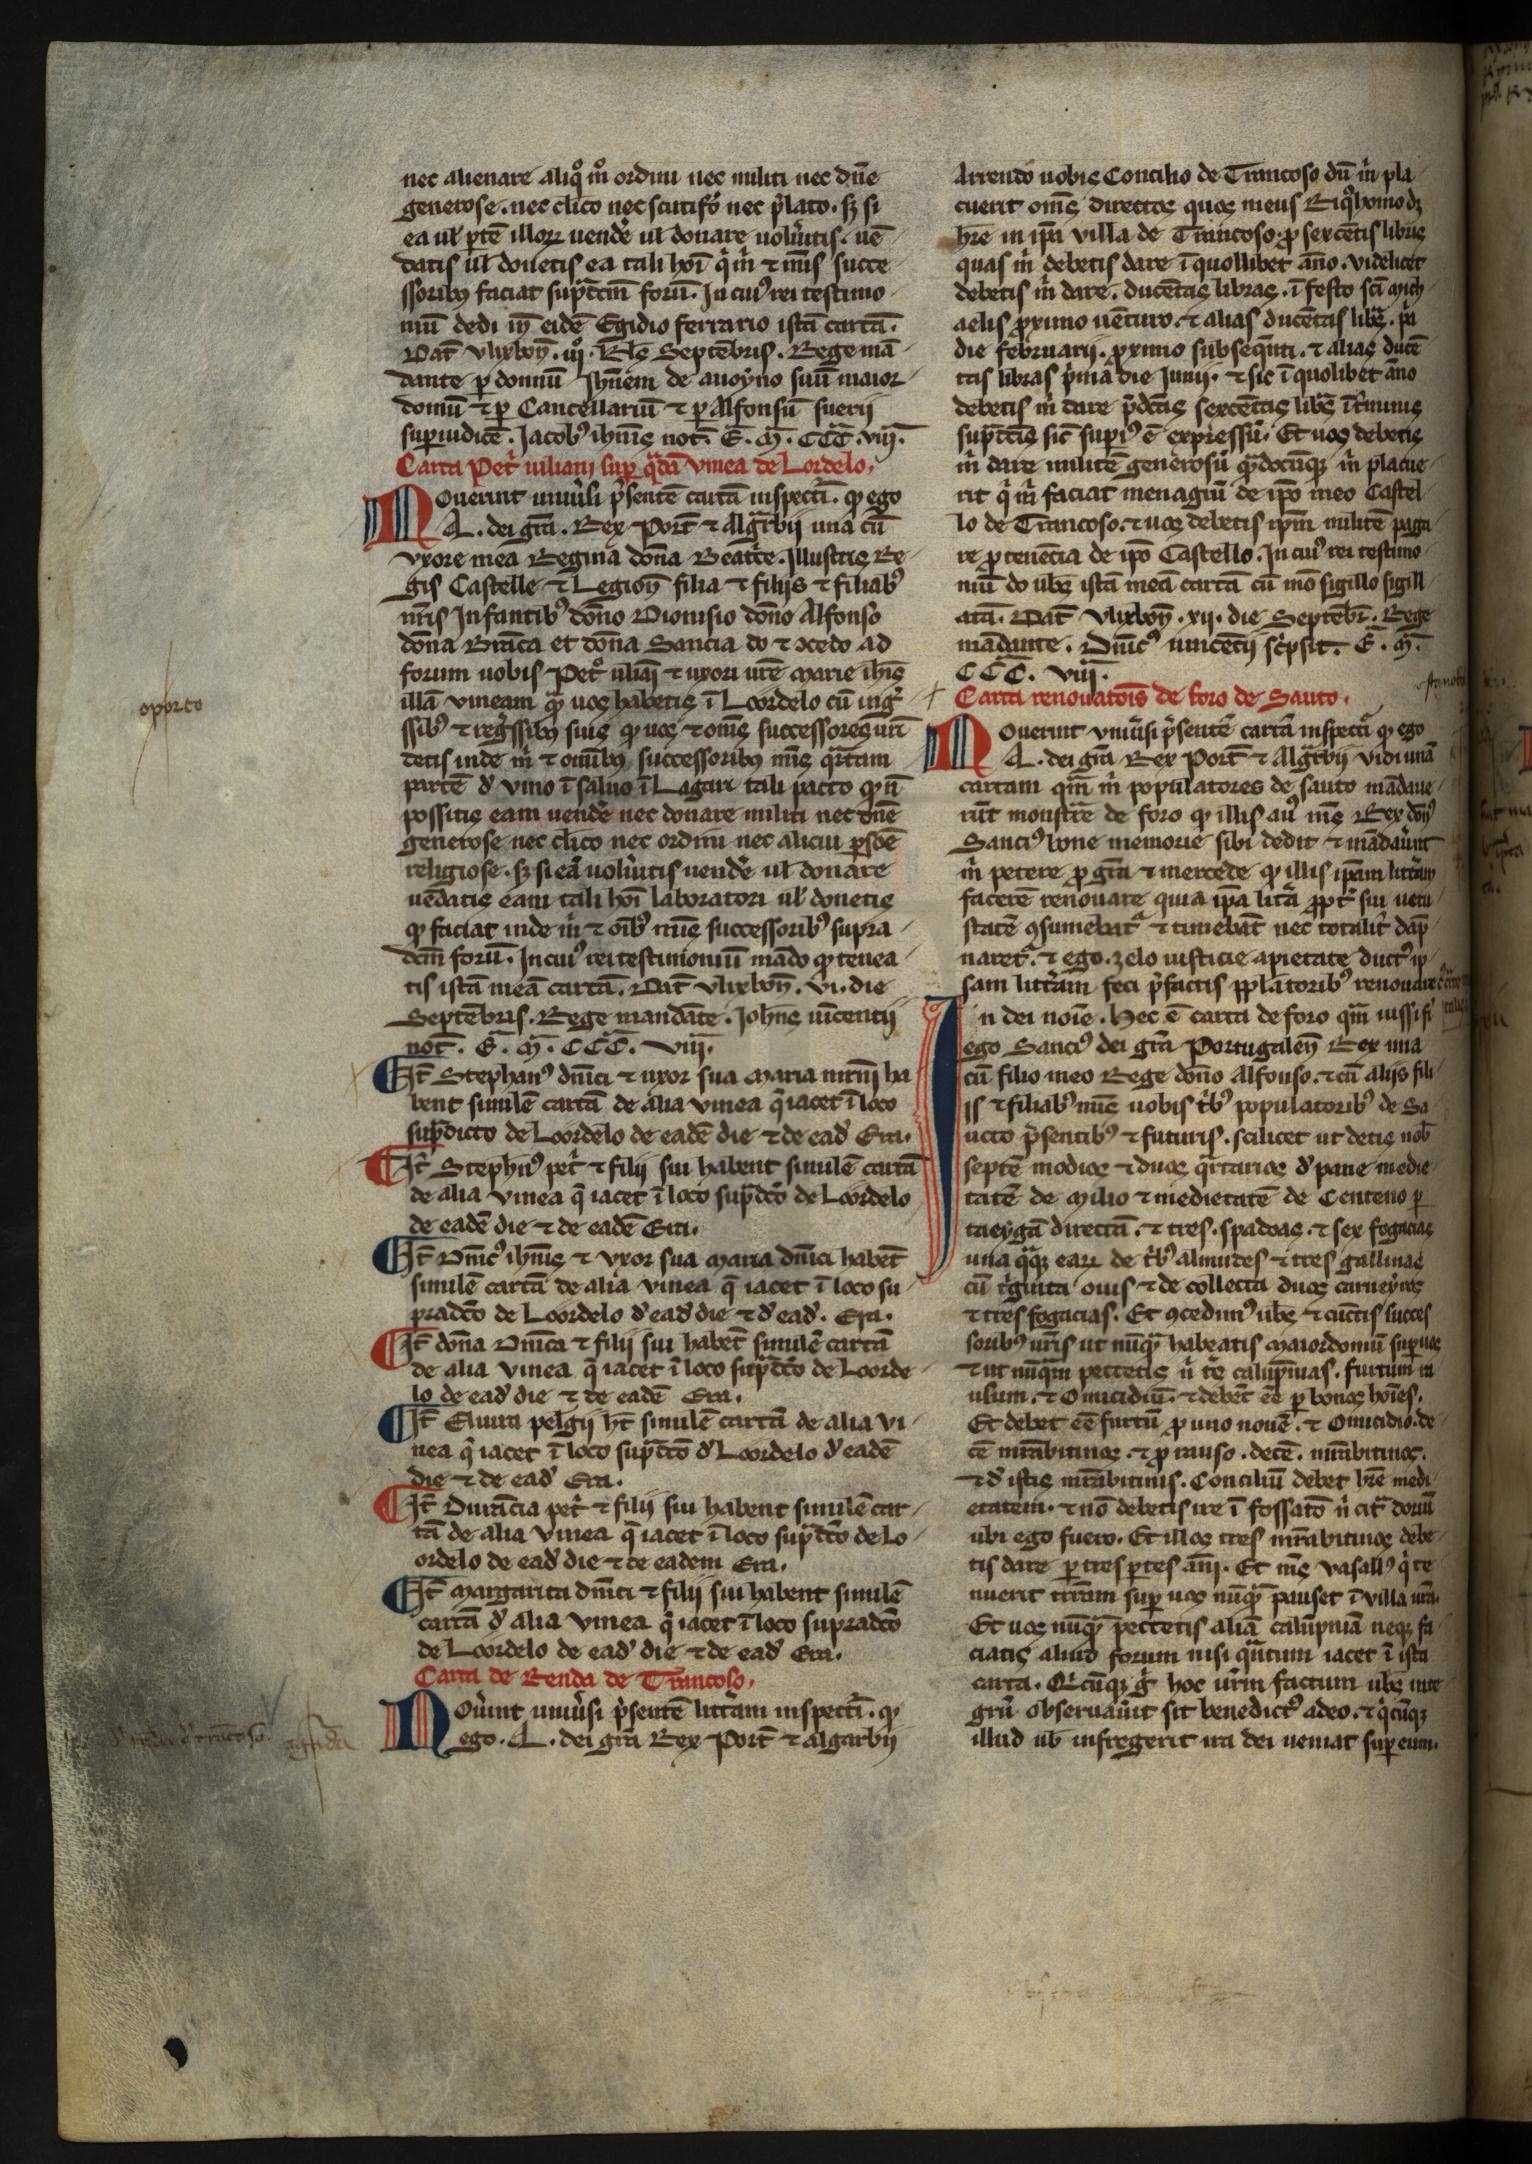 nec alienare aliq̊ m̊ ordini nec militi nec dn̄e
generose. nec cl̄ico nec scutif̓o nec p̓lato. sꝫ si
ea ul̓ ꝑtē illoꝝ uend̓e ul̓ donare uolu̓itis. uē
datis ul̓ donetis ea tali hoı̄ q̓ m̓ ⁊ m̄is succe
ssoribꝰ faciat sup̄dc̄m forū. In cuiꝰ rei testimo
niū dedi īn eidē Egidio ferrario istā cartā.
Dat̄ Vlixbon̄. iiij̊. Kl̄s Septēbris. Rege mā
dante ꝑ donnū Joh̄nem de auoyno suū maior
domū ⁊ ꝑ Cancellariū ⁊ ꝑ Alfonsū suerij
suꝑiudicē. Jacobꝰ ioh̄nis not̄. E. M. CCC. viij.
Carta Pet̓ iuliani suꝑ q̓dā vinea de Lordelo.
Nouerint uniu̓si p̓sentē cartā inspectı̄. qꝙ ego
A. dei gr̄a. Rex Port̄ ⁊ Algarbij una cū
vxore mea Regina dōna Beatc̄e. Illustris Re
gis Castelle ⁊ Legion̄ filia ⁊ filijs ⁊ filiabꝰ
nr̄is Infantibꝰ dōno Dionisio dōno Alfonso
dōna Brāca et dōna Sancia do ⁊ ꝯcedo ad
forum uobis Pet̊ iuliāi ⁊ uxori ur̄e Marie ioh̄is
illā vineam qꝫ uos habetis ı̄ Loordelo cū ingr̓
ssibꝰ ⁊ regr̓ssibꝰ suis qꝙ uos ⁊ om̄s successores ur̄i
detis inde m̓ ⁊ om̄ibꝰ successoribꝰ m̄is q̓rtam
partē d̓ vino ı̄ saluo ı̄ Lagari tali pacto qꝙ n̄
possitis eam uend̓e nec donare militi nec dn̄e
generose nec cl̄ico nec ordini nec alicui ꝑsōe
religiose. sꝫ si eā uolu̓itis uend̓e ul̓ donare
uēdatis eam tali hoı̄ laboratori ul̓ donetis
qꝙ faciat inde m̓ ⁊ oı̄bꝰ m̄is successoribꝰ supra
dcm̄ forū. In cuiꝰ rei testimoniū mādo qꝙ tenea
tis istā meā cartā. Dat̄ vlixbon̄. vi. die
Septēbris. Rege mandāte. Joh̄nes uicentij
not̄. E. M. CCC. Viij.
It̄ Stephanꝰ dn̄ici ⁊ uxor sua Maria mr̄tinj ha
bent similē cartā de alia vinea q̄ iacet ı̄ loco
sup̄dicto de Loordelo de eadē die ⁊ de ead̓ Era.
It̄ Steph̄nꝰ pet̓ ⁊ filij sui habent similē cartā
de alia vinea q̄ iacet ı̄ loco sup̄dc̄o de Loordelo
de eadē die ⁊ de eadē Era.
It̄ Dn̄icꝰ ioh̄nis ⁊ vxor sua Maria dn̄ici habēt
similē cartā de alia vinea q̄ iacet ı̄ loco su
pradc̄o de Loordelo d̓ ead̓ die ⁊ d̓ ead̓. Era.
It̄ dōna Dn̄ica ⁊ filij sui habēt similē cartā
de alia vinea q̄ iacet ı̄ loco sup̄dc̄o de Loorde
lo de ead̓ die ⁊ de eadē Era.
It̄ Eluira pelagij ht̄ similē cartā de alia vi
nea q̄ iacet ı̄ loco sup̄dc̄o d̓ Loordelo d̓ eadē
die ⁊ de ead̓ Era.
It̄ Durācia pet̓ ⁊ filij sui habent similē car
tā de alia vinea q̄ iacet ı̄ loco sup̄dc̄o de Lo
ordelo de ead̓ die ⁊ de eadem Era.
It̄ Margarita dn̄ici ⁊ filij sui habent similē
cartā d̓ alia vinea q̄ iacet ı̄ loco supradc̄o
de Loordelo de ead̓ die ⁊ de ead̓ Era.
Carta de Renda de Trancoso.
Nou̓int uniu̓si p̓sentē litt̓am inspectı̄. qꝙ
ego. A. dei grā Rex Port̄ ⁊ algarbij
oporto
Arrendo uobis Concilio de Trancoso dū m̓ pla
cuerit om̄s directos quos meus Riqꝰhomo dꝫ
hr̄e in ip̄a villa de Trancoso ꝓ sexcētis libris
quas m̓ debetis dare ı̄ quolibet āno. videlicet
debetis m̓ dare. ducētas libras. ı̄ festo sc̄i Mich
aelis ꝓximo uēturo. ⁊ alias ducētas libr̄. p̓a
die februarij. ꝓximo subseq̄nti. ⁊ alias ducē
tas libras p̓ma die Junij. ⁊ sic ı̄ quolibet āno
debetis m̓ dare p̄dc̄as sexcētas libr̄s ı̄ t̓minis
sup̄dc̄is sic̄ supiꝰ ē expressū. Et uos debetis
m̓ dare militē generosū q̄docūqꝫ m̓ placue
rit q̓ m̓ faciat menagiū de ip̄o meo Castel
lo de Trancoso. ⁊ uos debetis ip̄m militē paga
re ꝓ tenēcia de ip̄o Castello. In cuiꝰ rei testimo
niū do ub̄s istā meā cartā cū mō sigillo sigill
atā. Dat̄ Vlixbon̄. xij. die Septēbr̄. Rege
mādante. Dn̄icꝰ uincētij sc̓psit. E. M.
CCC. Viij.
Carta renouatōis de foro de Sauto.
Nouerint vniu̓si p̓sentē cartā inspectı̄ qꝙ ego
A. dei grā Rex Port̄ ⁊ Algarbij vidi unā
cartam qm̄ m̓ populatores de sauto mādaue
rūt monstrāe de foro qꝙ illis auꝰ m̄s Rex dōnꝰ
Sanciꝰ bone memorie sibi dedit ⁊ mādau̓unt
m̓ petere ꝓ grā ⁊ mercede qꝙ illis ip̄am litt̓am
facerē renouare quia ip̄a litt̓a ꝓpt̓ sui uetu
statē ꝯsumebat̓ ⁊ timebāt nec totalit̓ dāp
naret̓. ⁊ ego. zelo iusticie a pietate ductꝰ ip
sam litt̓am feci p̓factis pp̄latoribꝰ renouare
In dei noı̄e. Hec ē carta de foro qm̄ iussi fi̓
ego Sanciꝰ dei grā Portugalen̄ Rex una
cū filio meo Rege dōno Alfonso. ⁊ cū alijs fili
js ⁊ filiabꝰ m̄is uobis t̓bꝰ populatoribꝰ de Sa
ucto p̓sentibꝰ ⁊ futuris. scilicet ut detis nob̄
septē modios ⁊ duos q̓rtarios d̓ pane medie
tatē de Milio ⁊ medietatē de Centeno ꝑ
taeygā directā. ⁊ tres. spadoas. ⁊ sex fogacias
una q̓qꝫ eaꝝ de t̓bꝰ almudes ⁊ tres gallinas
cū t̓ginta ouis ⁊ de collecta duos carneyros
⁊ tres fogacias. Et ꝯcedimꝰ ub̄s ⁊ cūctis succes
soribꝰ ur̄is ut nūqꝫ habeatis Maiordomū suꝑ uos
⁊ ut nūqm̄ pectetis n̓ t̓s calūpnias. furtum in
ulum. ⁊ Omicidiū. ⁊ debēt ēe ꝑ bonos hoı̄es.
Et debet ēe furtū ꝓ uno nouē. ⁊ Omicidio. de
cē mr̄abitinos. ⁊ ꝓ rauso. decē. mr̄abitinos.
⁊ d̓ istis mr̄abitinis. Conciliū debet hr̄e medi
etatem. ⁊ nō debetis ire ı̄ fossato n̓ cit̓ doriū
ubi ego fuero. Et illos tres mr̄abitinos debe
tis dare ꝑ tres ꝑtes an̄j. Et m̄s vasallꝰ q̓ te
nuerit tr̄ram suꝑ uos nūqꝫ pauset ı̄ villa ur̄a.
Et uos nūqꝫ pectetis aliā calūpniā neqꝫ fa
ciatis aliud forum nisi q̓ntum iacet ı̄ ista
carta. Q̓cūqꝫ g̓ hoc ur̄m factum ub̄s inte
grū obseruau̓it sit benedictꝰ adeo. ⁊ q̓cūqꝫ
illud ub̄ infregerit ira dei ueniat suꝑ eum.